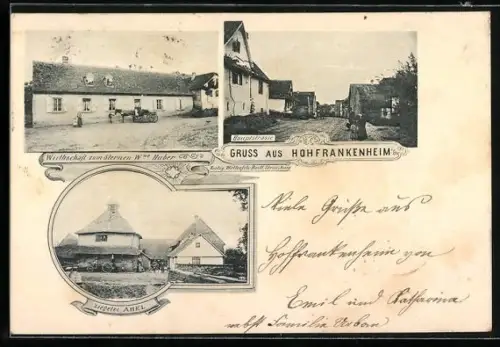 Hauptstrasse
Wirthschaft zum Sternen Wwe Huber
GRUSS AUS HOHFRANKENHEIM
Ziegelei ABEL
Viele Grüße aus
Hohfrankenheim von
Emil und Katharina
nebst Familie Urban